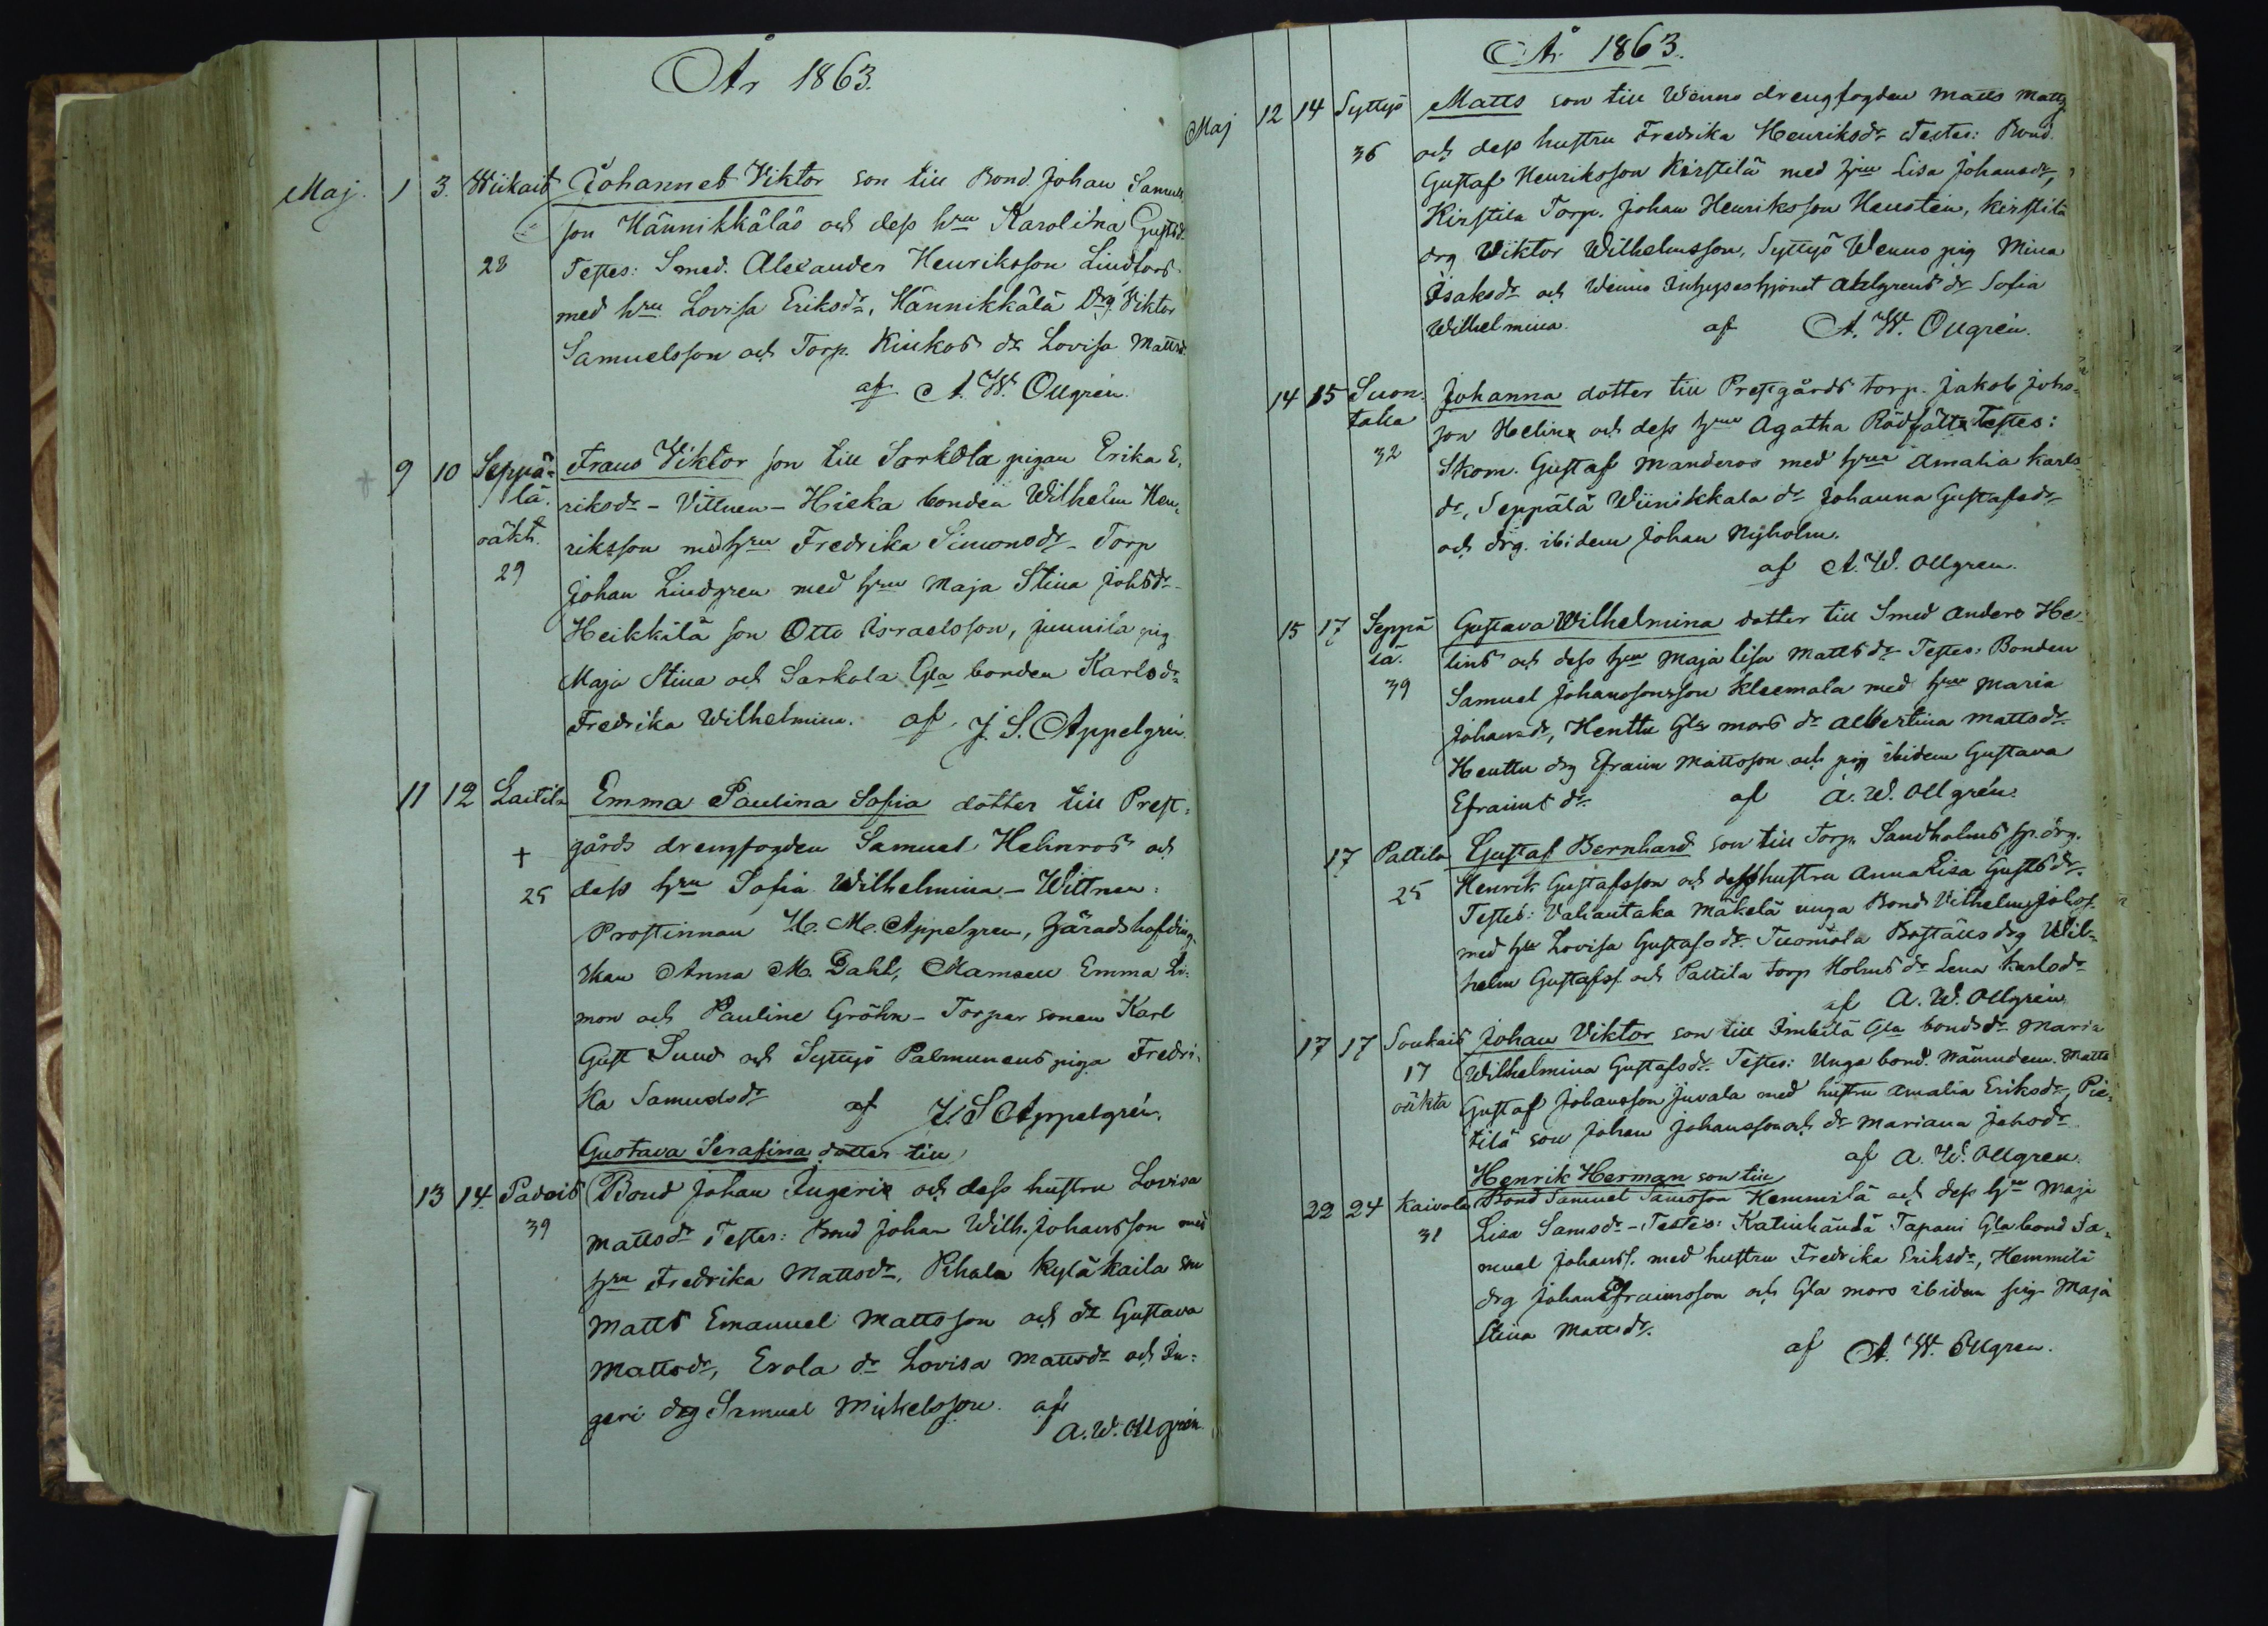 År 1863.
Maj. 1 3. Wiikais Johannes Viktor son till Bond Johan Samuels
son Männikkäläs och dess hru Karolina Gustsdr
28 Testes: Smed. Alexander Henriksson Lindfors
med hru Lovisa Eriksdr, Männikkälä Drg. Viktor
Samuelsson och Torp. Kiukos dr Lovisa Mattsd.
af A. W. Ollgrén.
9 10 Seppä= Frans Viktor son till Sorkola pigan Erika E,
lä. riksdr - Vittnen - Hieka bonden Wilhelm Hen,
oäkt. riksson med hru Fredrika Simonsdr - Torp
29 Johan Lindgren med hru Maja Stina Johsdr
Heikkilä son Otto Israelsson, Junnila pig
Maja Stina och Sarkola Gla bonden Karlsdr
Fredrika Wilhelmina. af J. S. Appelgrén.
11 12 Laitila Emma Paulina Sofia dotter till Prest,
+ gårds drengfogden Samuel Helinros och
25 dess hru Sofia Wilhelmina - Wittnen:
Prostinnan M. Appelgren, häradshöfding
skan Anna M. Dahl, Mamsell Emma Li,
mon och Pauline Gröhn - Torpar sonen Karl
Gust Lund och Syttyö Palmunens piga Fredri,
ka Samuelsdr af J. S. Appelgrén.
Gustava Serafina dotter till
13 14. Padois Bond Johan Ingeris och dess hustru Lovisa
39 Mattsdr Testes: Bond Johan Wilh. Johansson med
hru Fredrika Mattsdr, Rehala Kyläkaila son
Matts Emanuel Mattsson och dr Gustava
Mattsdr, Erola dr Lovisa Mattsdr och In:
geri drg Samuel Mikelsson. af
A. W. Ollgrén.
År 1863.
Maj 12 14 Syttyö Matts son till Wänno drengfogden Matts Matts
36 och dess hustru Fredrika Henriksdr Testes: Bond.
Gustaf Henriksson Kirstilä med hru Lisa Johansdr,
Kirstila Torp. Johan Henriksson Hensten, Kirstilä
drg Wiktor Wilhelmsson, Syttyö Wenno pig Mina
Isaksdr och Wänno Inhyseshjonet Ahlgrens dr Sofia
Wilhelmina. af A. W. Ollgrén.
14 15 Suon= Johanna dotter till Prestgårds torp. Jakob Johs=
taka son Helin och dess hru Agatha Rödfält Testes:
32 Skom. Gustaf Manderos med hru Amalia Karls
dr, Seppälä Wiinikkala dr Johanna Gustafsdr
och drg. ibidem Johan Nyholm.
af A. W. Ollgren.
15 17 Seppä Gustava Wilhelmina dotter till Smed Anders He-
lä. lins och dess hru Maja Lisa Mattsdr Testes: Bonden
39 Samuel Johanssonsson Kleemola med hru Maria
Johansdr, Henttu Gla mors dr Albertina Mattsdr
Henttu drg Efraim Mattsson och pig ibidem Gustava
Efraims dr. af A. W. Ollgrén.
17 Paltila Gustaf Bernhard son till Torp. Sandholms sp. drg.
25 Henrik Gustafsson och dess hustru Anna Lisa Gustsdr.
Testes: Vahantaka Mäkelä unga Bond Vilhelm Johss.
med hru Lovisa Gustafsdr Tuomola Boställs drg Wil=
helm Gustafss. och Paltila torp Holms dr Lena Karlsdr
af A. W. Ollgrén
17 17 Soukais Johan Viktor son till Imbilä Gla bondsdr Maria
17 Wilhelmina Gustafsdr. Testes: Unga bond. Nämndem. Matts
oäkta Gustaf Johansson Juvala med hustru Amalia Eriksdr, Pie,
tilä son Johan Johansson och dr Mariana Johsdr
af A. W. Ollgren.
Henrik Herman son till
22 24 Kaivola Bond Samuel Samsson Hemmilä och dess hru Maja
31 Lisa Samsdr - Testes: Katinhändä Tapani Gla bond Sa,
muel Johanss. med hustru Fredrika Eriksdr, Hemmilä
drg Johan Efraimsson och Gla mors ibidem pig Maja
Stina Mattsdr. af A. W. Ollgren.